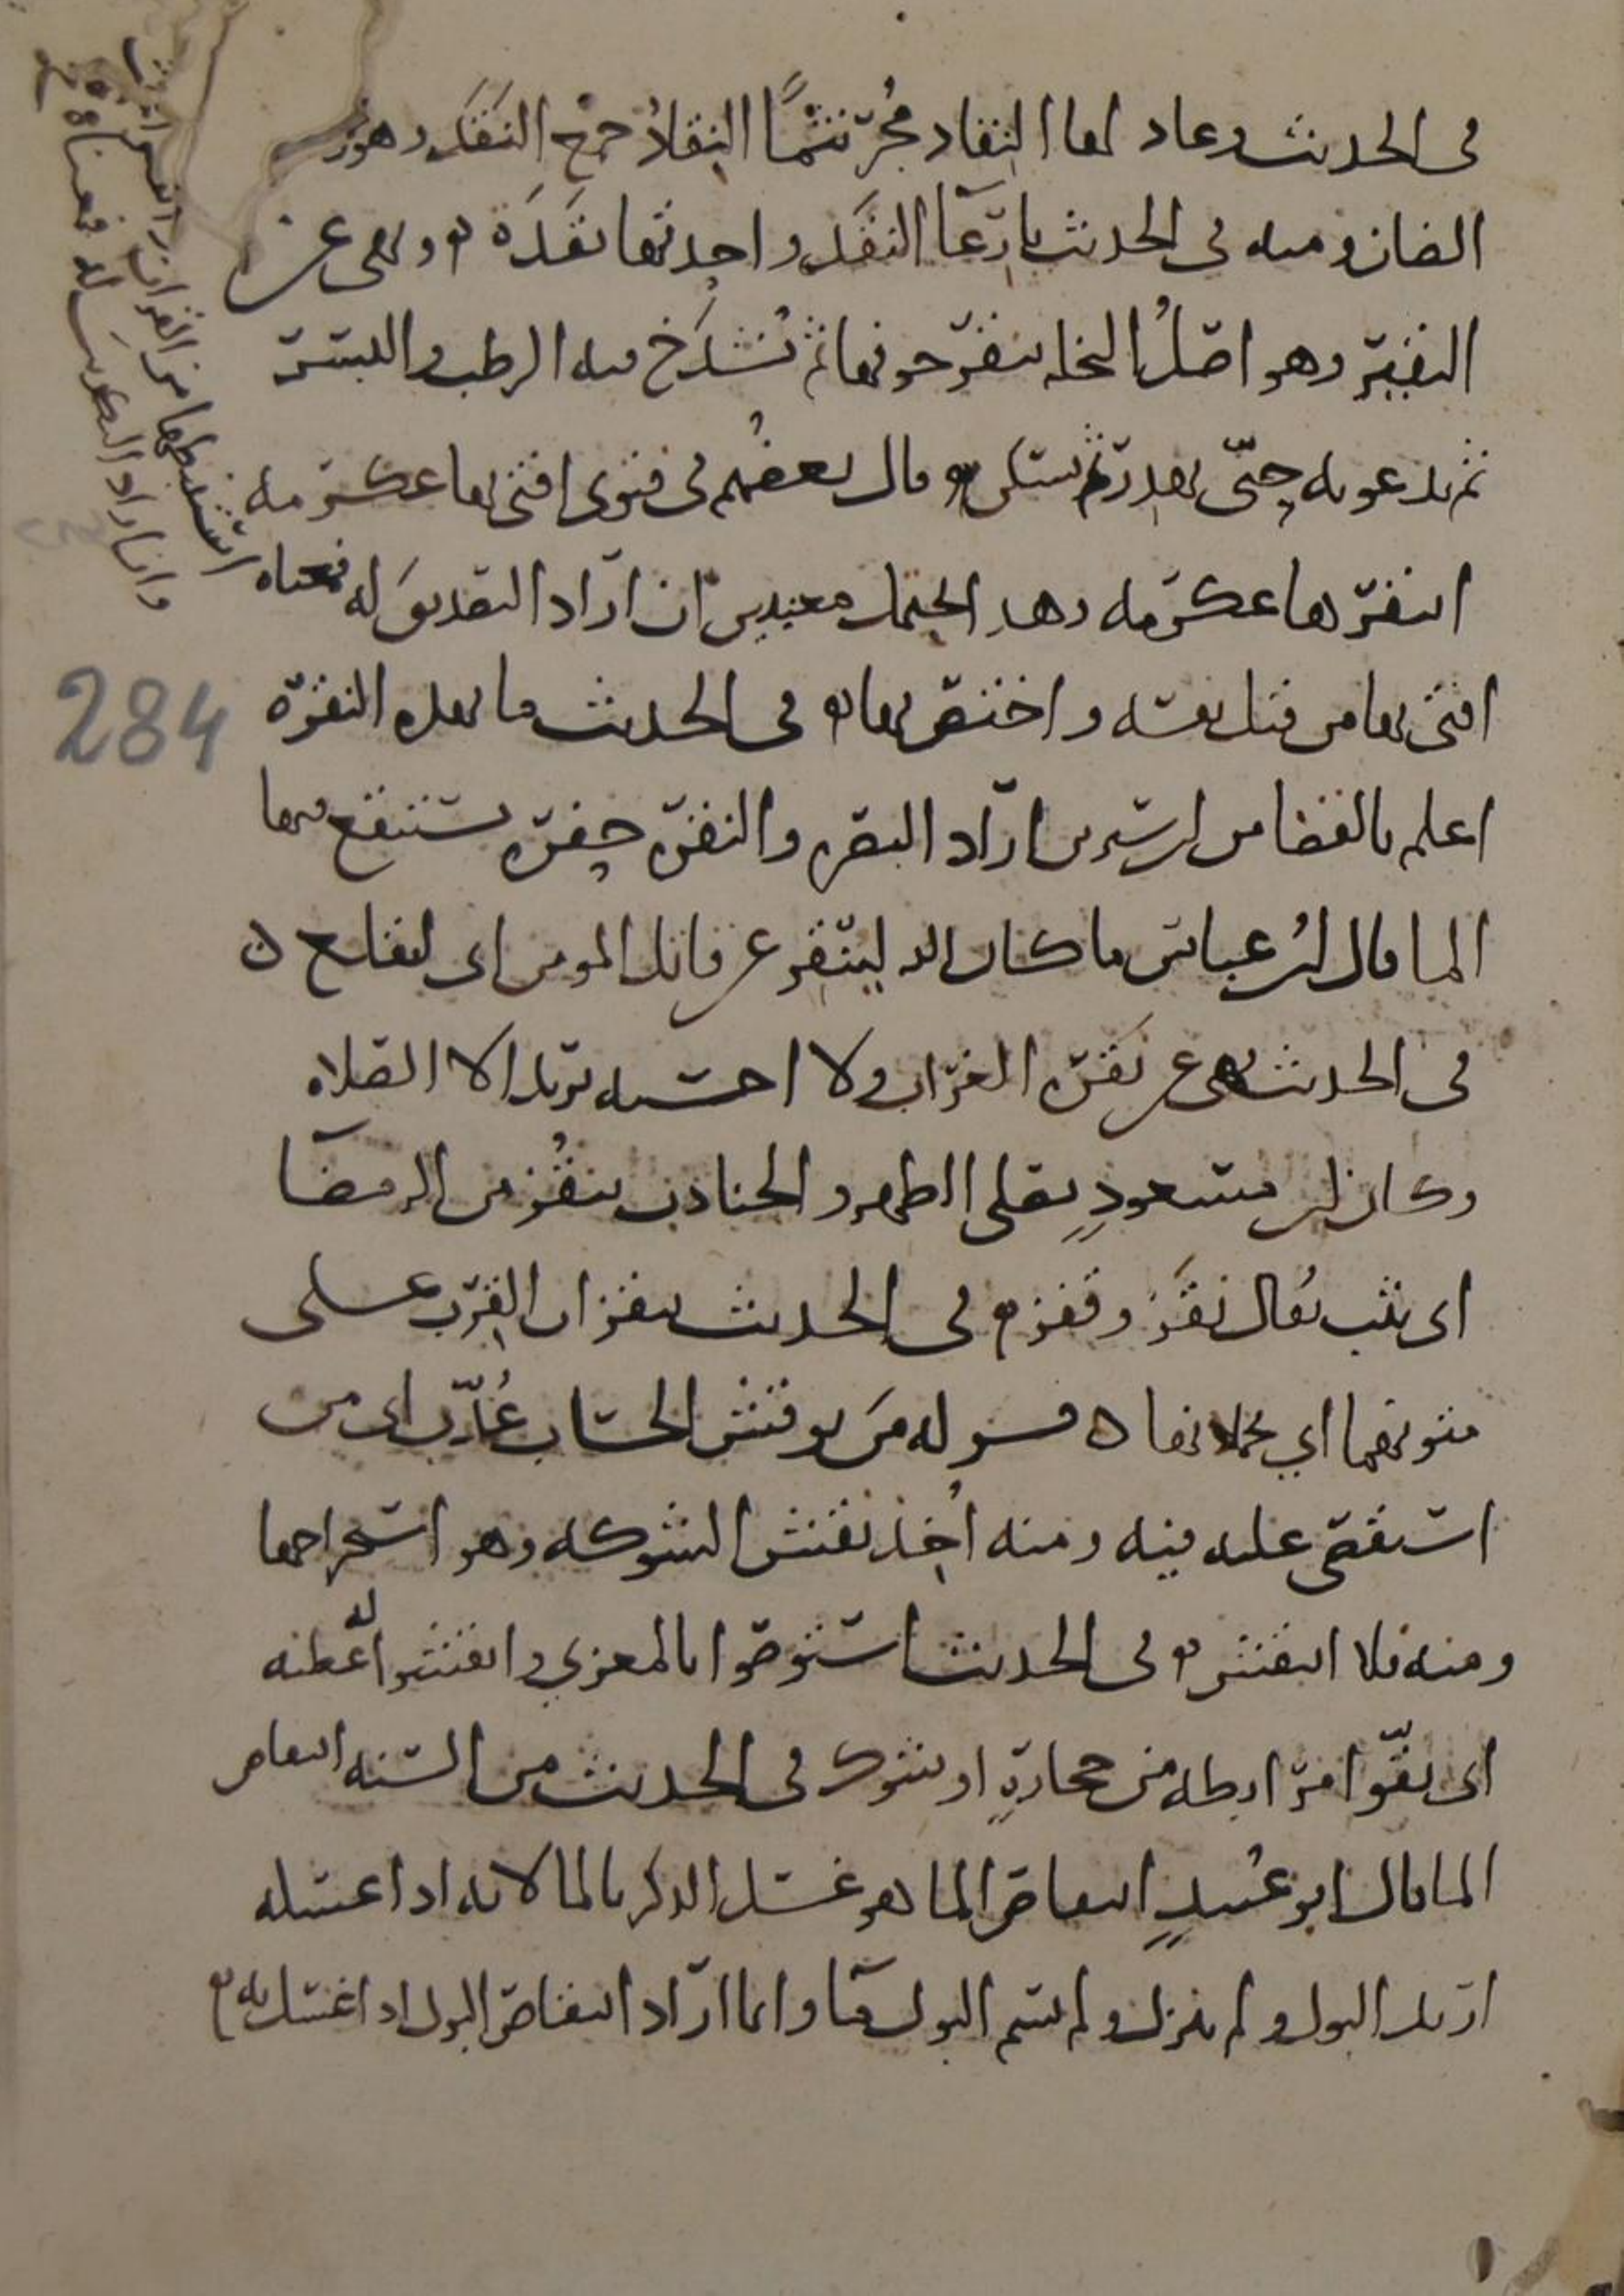 في الحديث وعاد لها النقاد مُجْرَنثمًا النقادُ جمع النَقَد وهو
الضان ومنه في الحديث يا رعَآ النقَد واحدتها نَقَدَة ونهى عن
النقير وهو اصلُ النخله ينقر جوفها ثم تُشدَخ فيه الرطب والبسر
ثم يدعونه حتى يهدر ثم يسكن وقال بعضُهم في فتوى افتى بها عكرمه
انتقرها عكرمه وهذا يحتمل معنيين ان اراد التصديق له فمعناه
افتى بها من قبل نفسه واختص بها في الحديث ما بهذه النقرة
اعلم بالقضا من ابن سيرين اراد البصره والنقره حفره يستنقع فيها
الما قال ابنُ عباس ما كان الله لينقر عن قاتل المومن اي ليقلع
في الحديث نهى عن نقره الغراب ولا احسبه يريد الا الصلاه
وكان ابن مسعودٍ يصلى الظهر والجنادب ينقُز من الرمضآ
اي يثب يُقال نقَز وقفز في الحديث ينقزان القرب على
متونهما اي يحملانها قوله مَن نوقش الحساب عُذّب اي من
استقصي عليه فيه ومنه اُخذ نقش الشوكه وهو استخراجها
ومنه فلا انتقش في الحديث استوصوا بالمعزي وانقشوا له عطنه
اي نقّوا مرابطه من حجارةٍ او شوك في الحديث من السنه انتقاص
الما قال ابو عُبيدٍ انتقاص الما هو غسل الذكر بالما لانه اذا غسله
ارتد البول ولم ينزل ولم يسم البول مآ وانما اراد انتقاص البول اذا اغتسل به
استنبطها من القران
وان اراد التكذيب له فمعناه
284